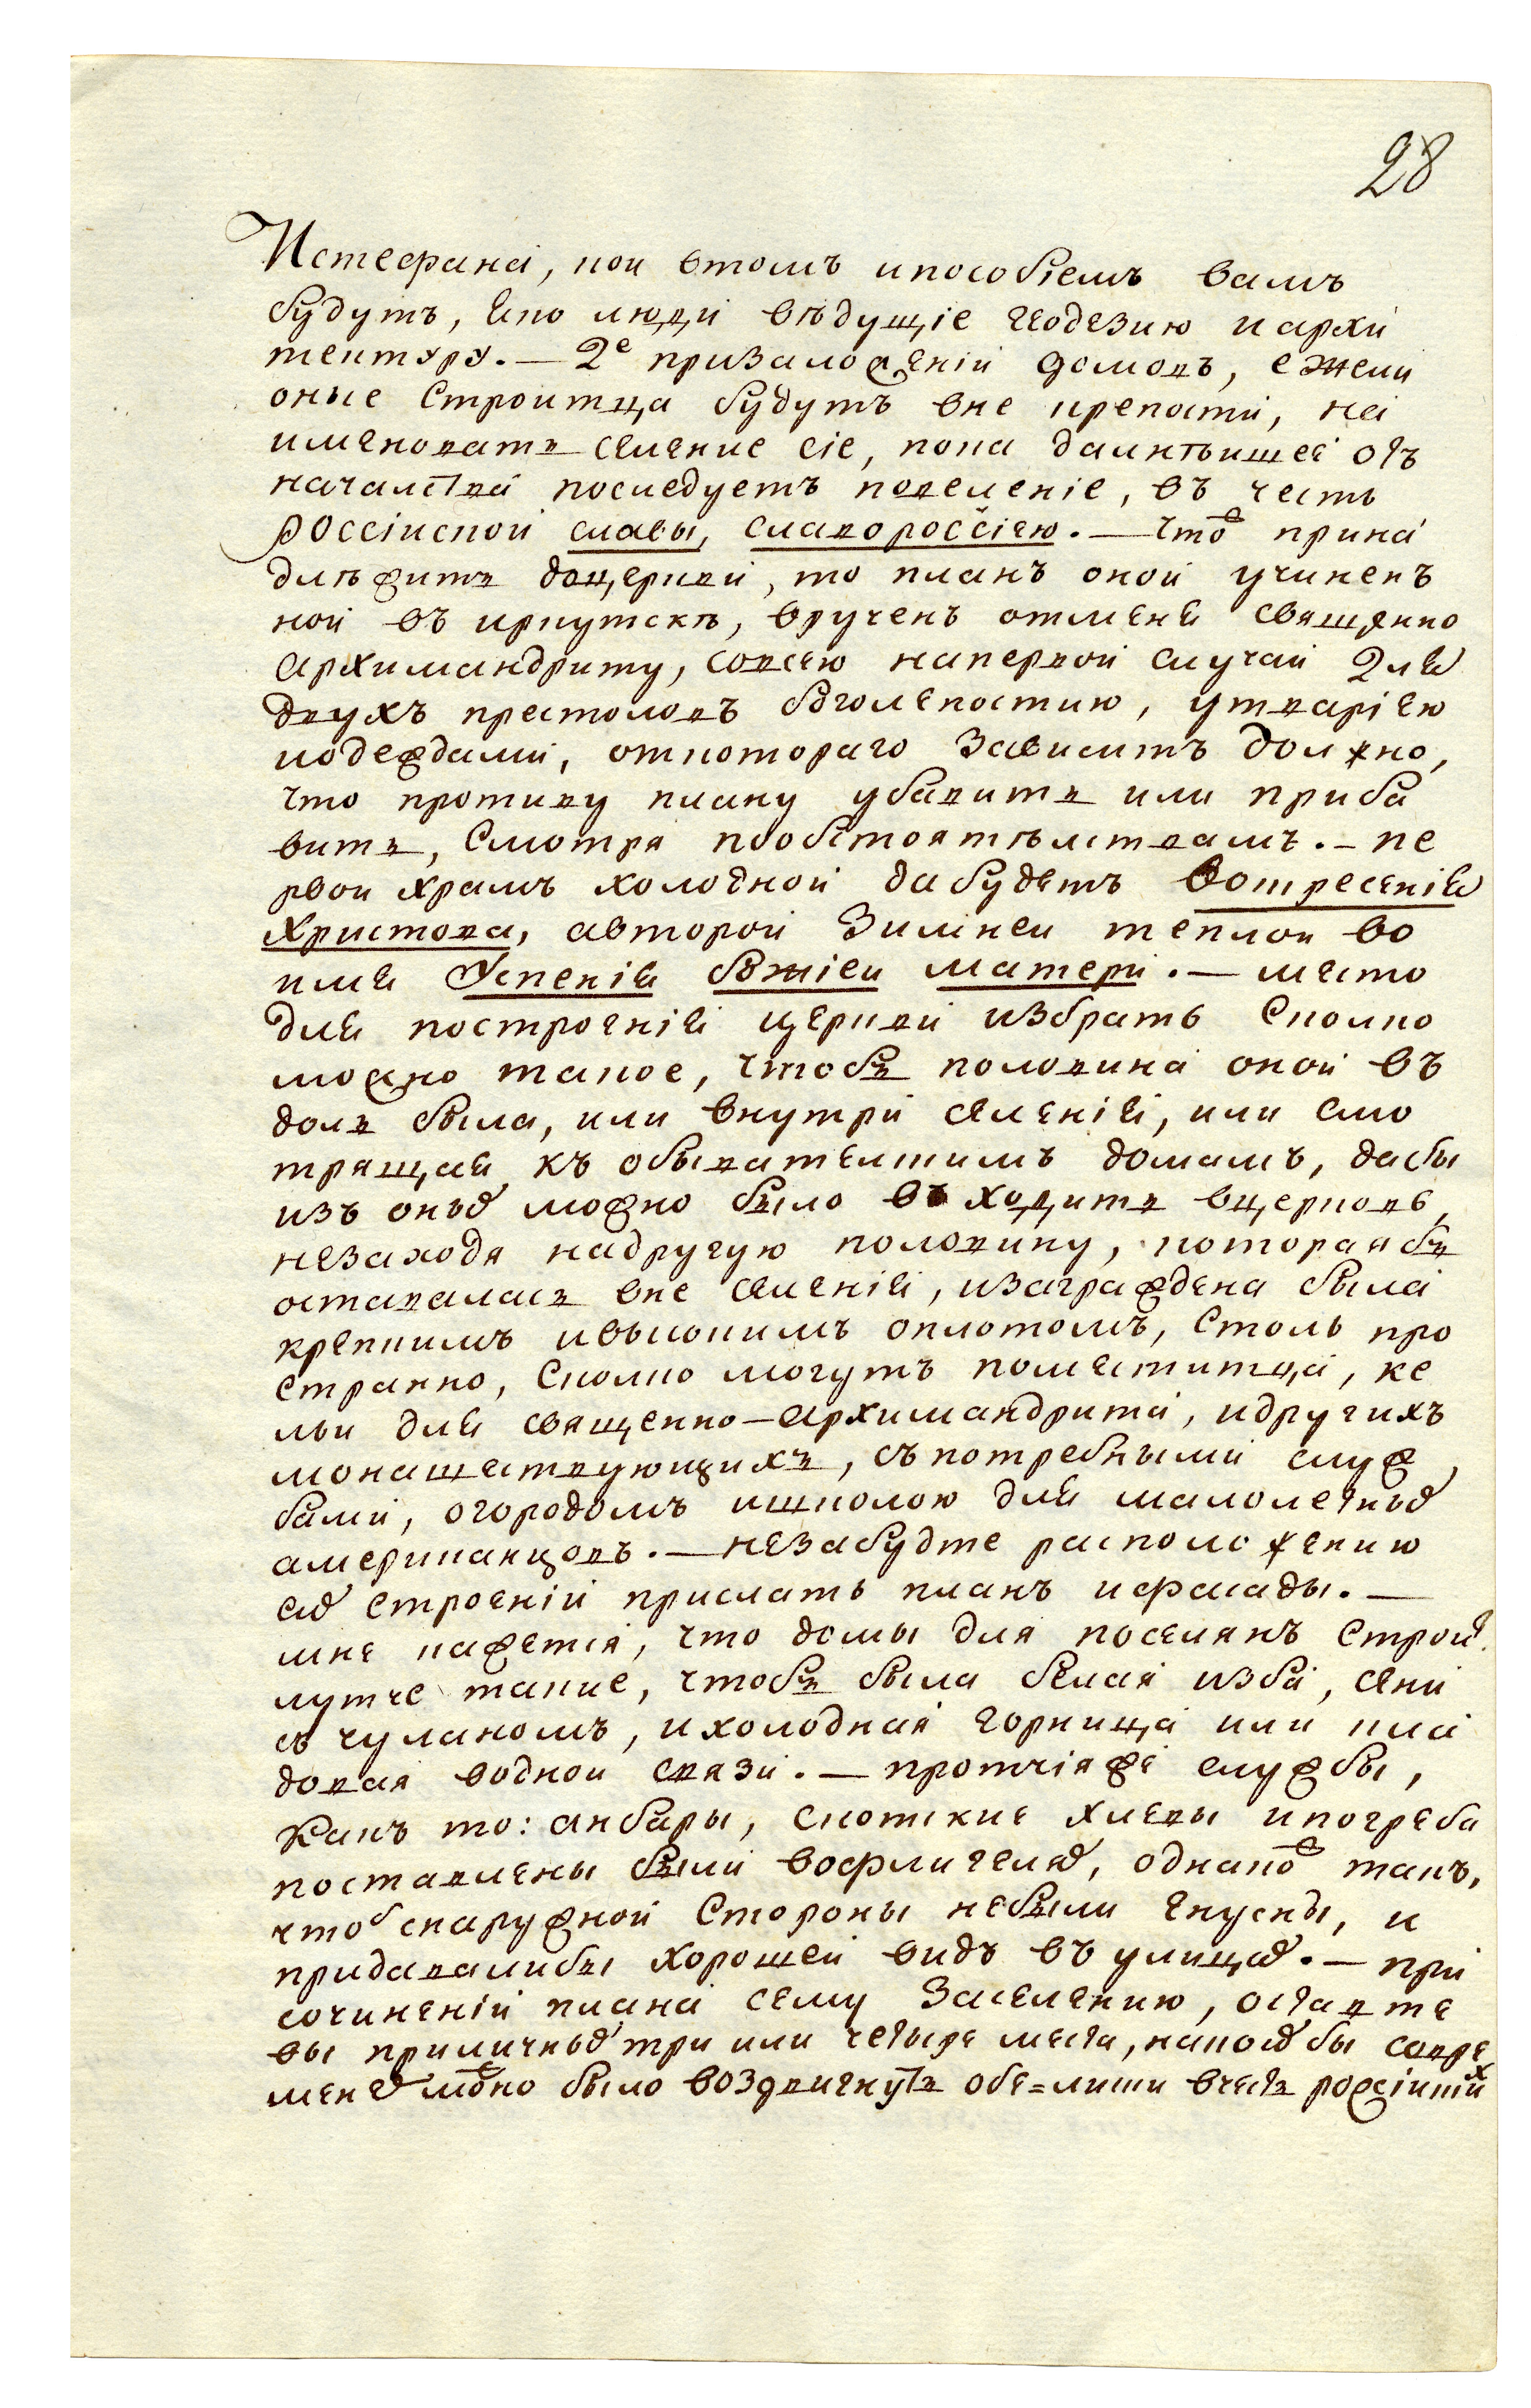 28
Истефана, кои втомъ ипособiемъ вамъ
будутъ, яко люди вѣдущiе геодезию иархи
тектуру. — 2е призаложенiи домовъ, ежели
оные строитца будутъ вне крепости, на
именовать селение сiе, пока далнѣишее отъ
началства последуетъ повеленiе, въ честь
россiиской славы, славороссiею. — что принад
длѣжитъ доцеркви, то планъ оной учинен
ной въ иркутскѣ, врученъ отменя священно
архимандриту, совсею напервой случай для
двухъ престоловъ бголепостию, утварiею
иодеждами, откотораго зависитъ должно,
что противу плану убавить или приба
вить, смотря пообстоятѣлствамъ. — пе
рвои храмъ холодной дабудетъ воскресенiя
христова, авторой зимнеи теплои во
имя Успенiя бжiеи матери. — место
для построенiя церкви избрать сколко
можно такое, чтобъ половина оной въ
доль была, или внутри селенiя, или смо
трящая къ обывателскимъ домамъ, дабы
изъ оныхъ можно было въ ходить вцерковь,
незаходя надругую половину, которая бъ
оставалась вне селенiя, изаграждена была
крепкимъ ивысокимъ оплотомъ, столь про
странно, сколко могутъ поместитца, ке
льи для священно-архимандрита, идругихъ
монашествующихъ, съ потребными служ
бами, огородомъ ишколою для малолетныхъ
американцовъ. — незабудте расположению
сихъ строенiи прислать планъ ифасады. —
мне кажетiя, что домы для поселянъ строить
лутче такие, чтобъ была белая изба, сени
съ чуланомъ, ихолодная горница или кла
довая водной связи. — протчiяже службы,
какъ то: анбары, скотские хлевы ипогреба
поставлены были вофлигелях, однакож такъ,
чтоб снаружной стороны небыли гнусны, и
придавалибы хорошей видъ въ улицах. — при
сочиненiи плана сему заселению, оставте
вы приличныхъ три или четыре места, накоих бы современ
менемъ можно было воздвигнуть обе=лиски вчесть россiискихъ